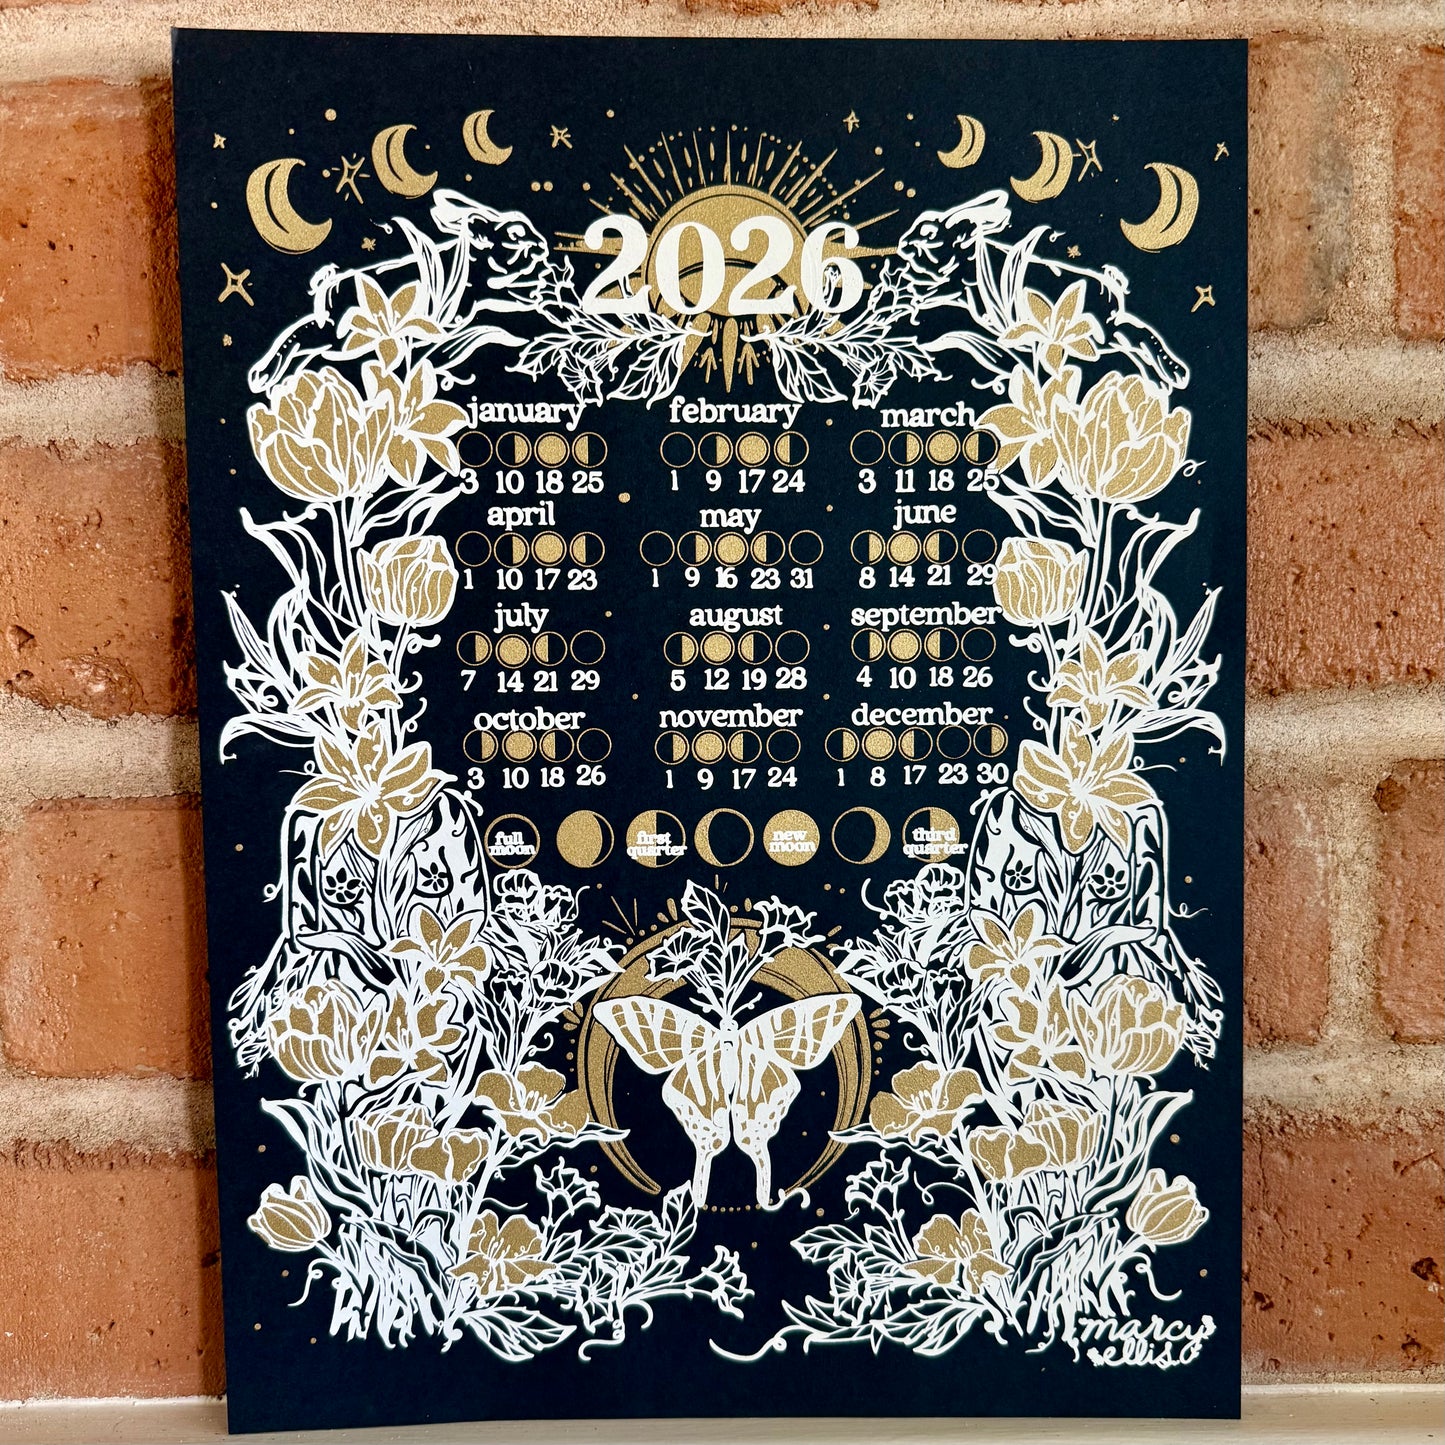 2026
january february march
3 10 18 25 1 9 17 24 3 11 18 25
april may june
1 10 17 23 1 9 16 23 31 8 14 21 29
july august september
7 14 21 29 5 12 19 28 4 10 18 26
october november december
3 10 18 26 1 9 17 24 1 8 17 23 30
full moon first quarter new moon third quarter
marcy
ellis